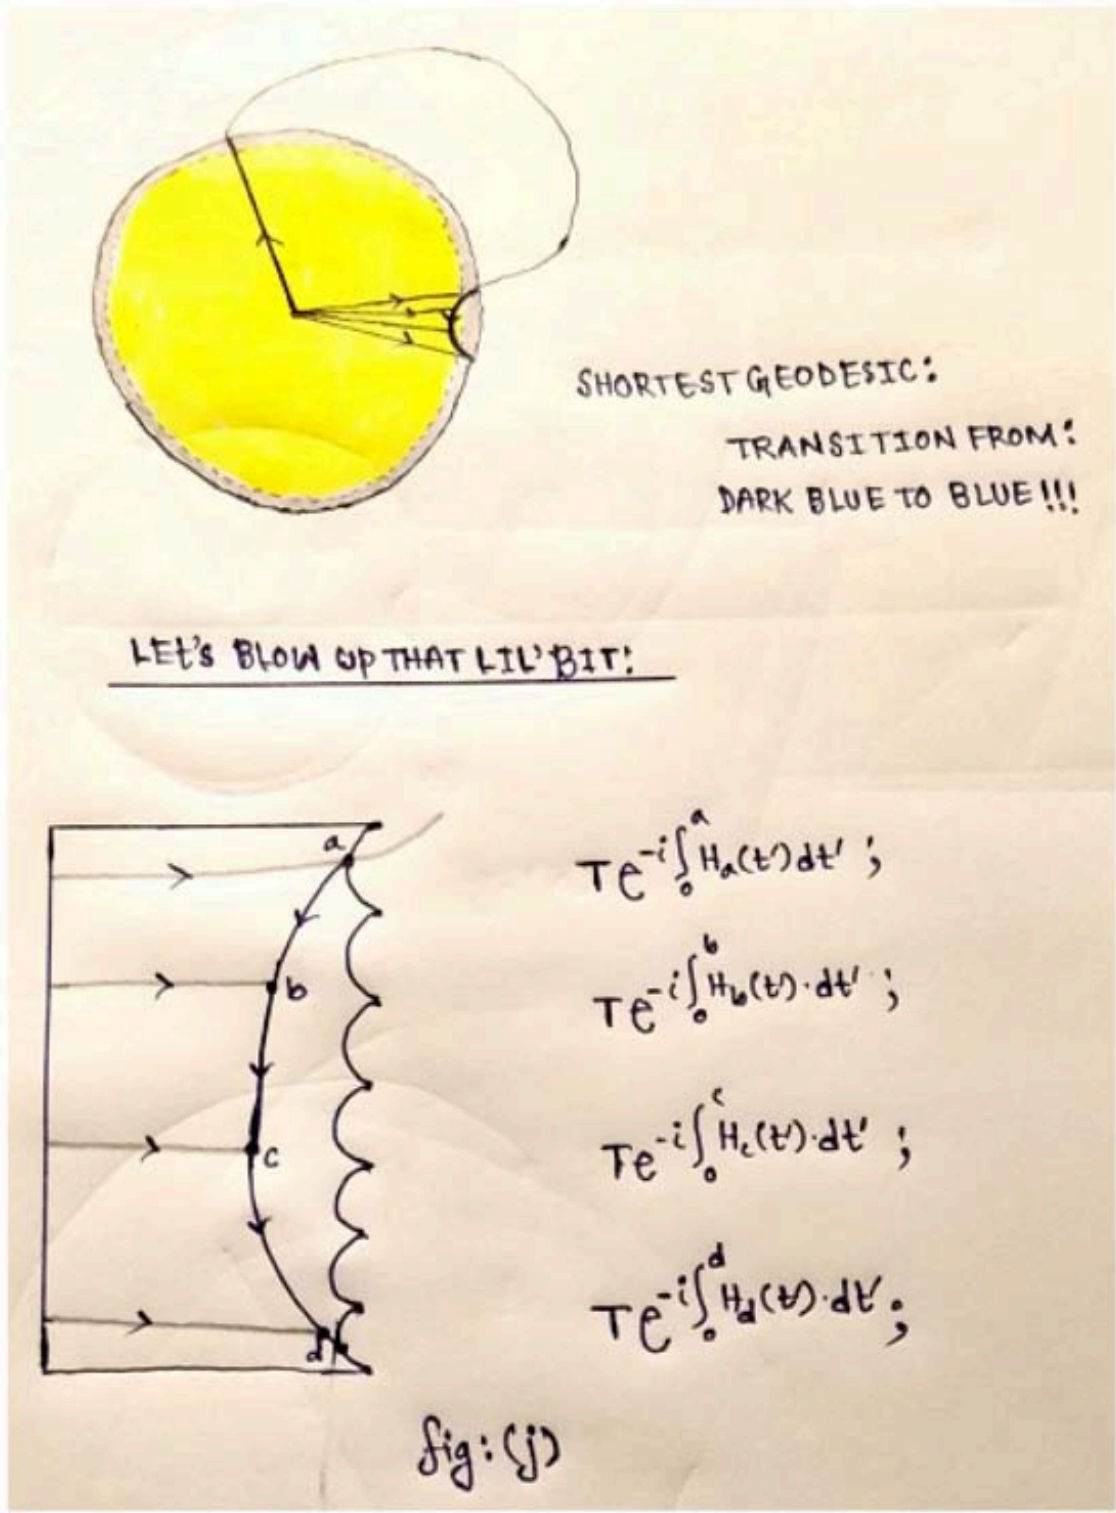 SHORTEST GEODESIC:
TRANSITION FROM:
DARK BLUE TO BLUE!!!
LET'S BLOW UP THAT LIL' BIT:
a
b
c
d
Te^{-i∫_0^a H_a(t')dt'} ;
Te^{-i∫_0^b H_b(t)·dt'} ;
Te^{-i∫_0^c H_c(t')·dt'} ;
Te^{-i∫_0^d H_d(t)·dt'} ;
fig:(j)